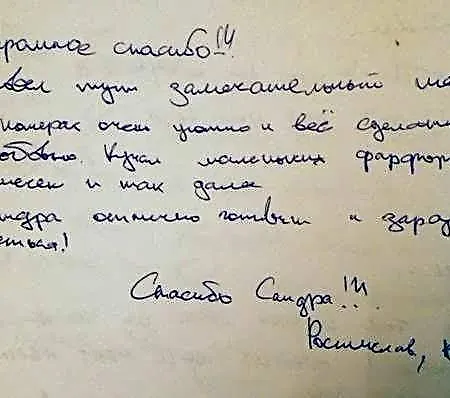 громное спасибо!!!
вел тут замечательный
номерах очень уютно и всё сделан
любовью. Куча маленьких фарфор
и так дале
андра отлично готовит и зараз
Спасибо Сандра!!!
Ростислав,